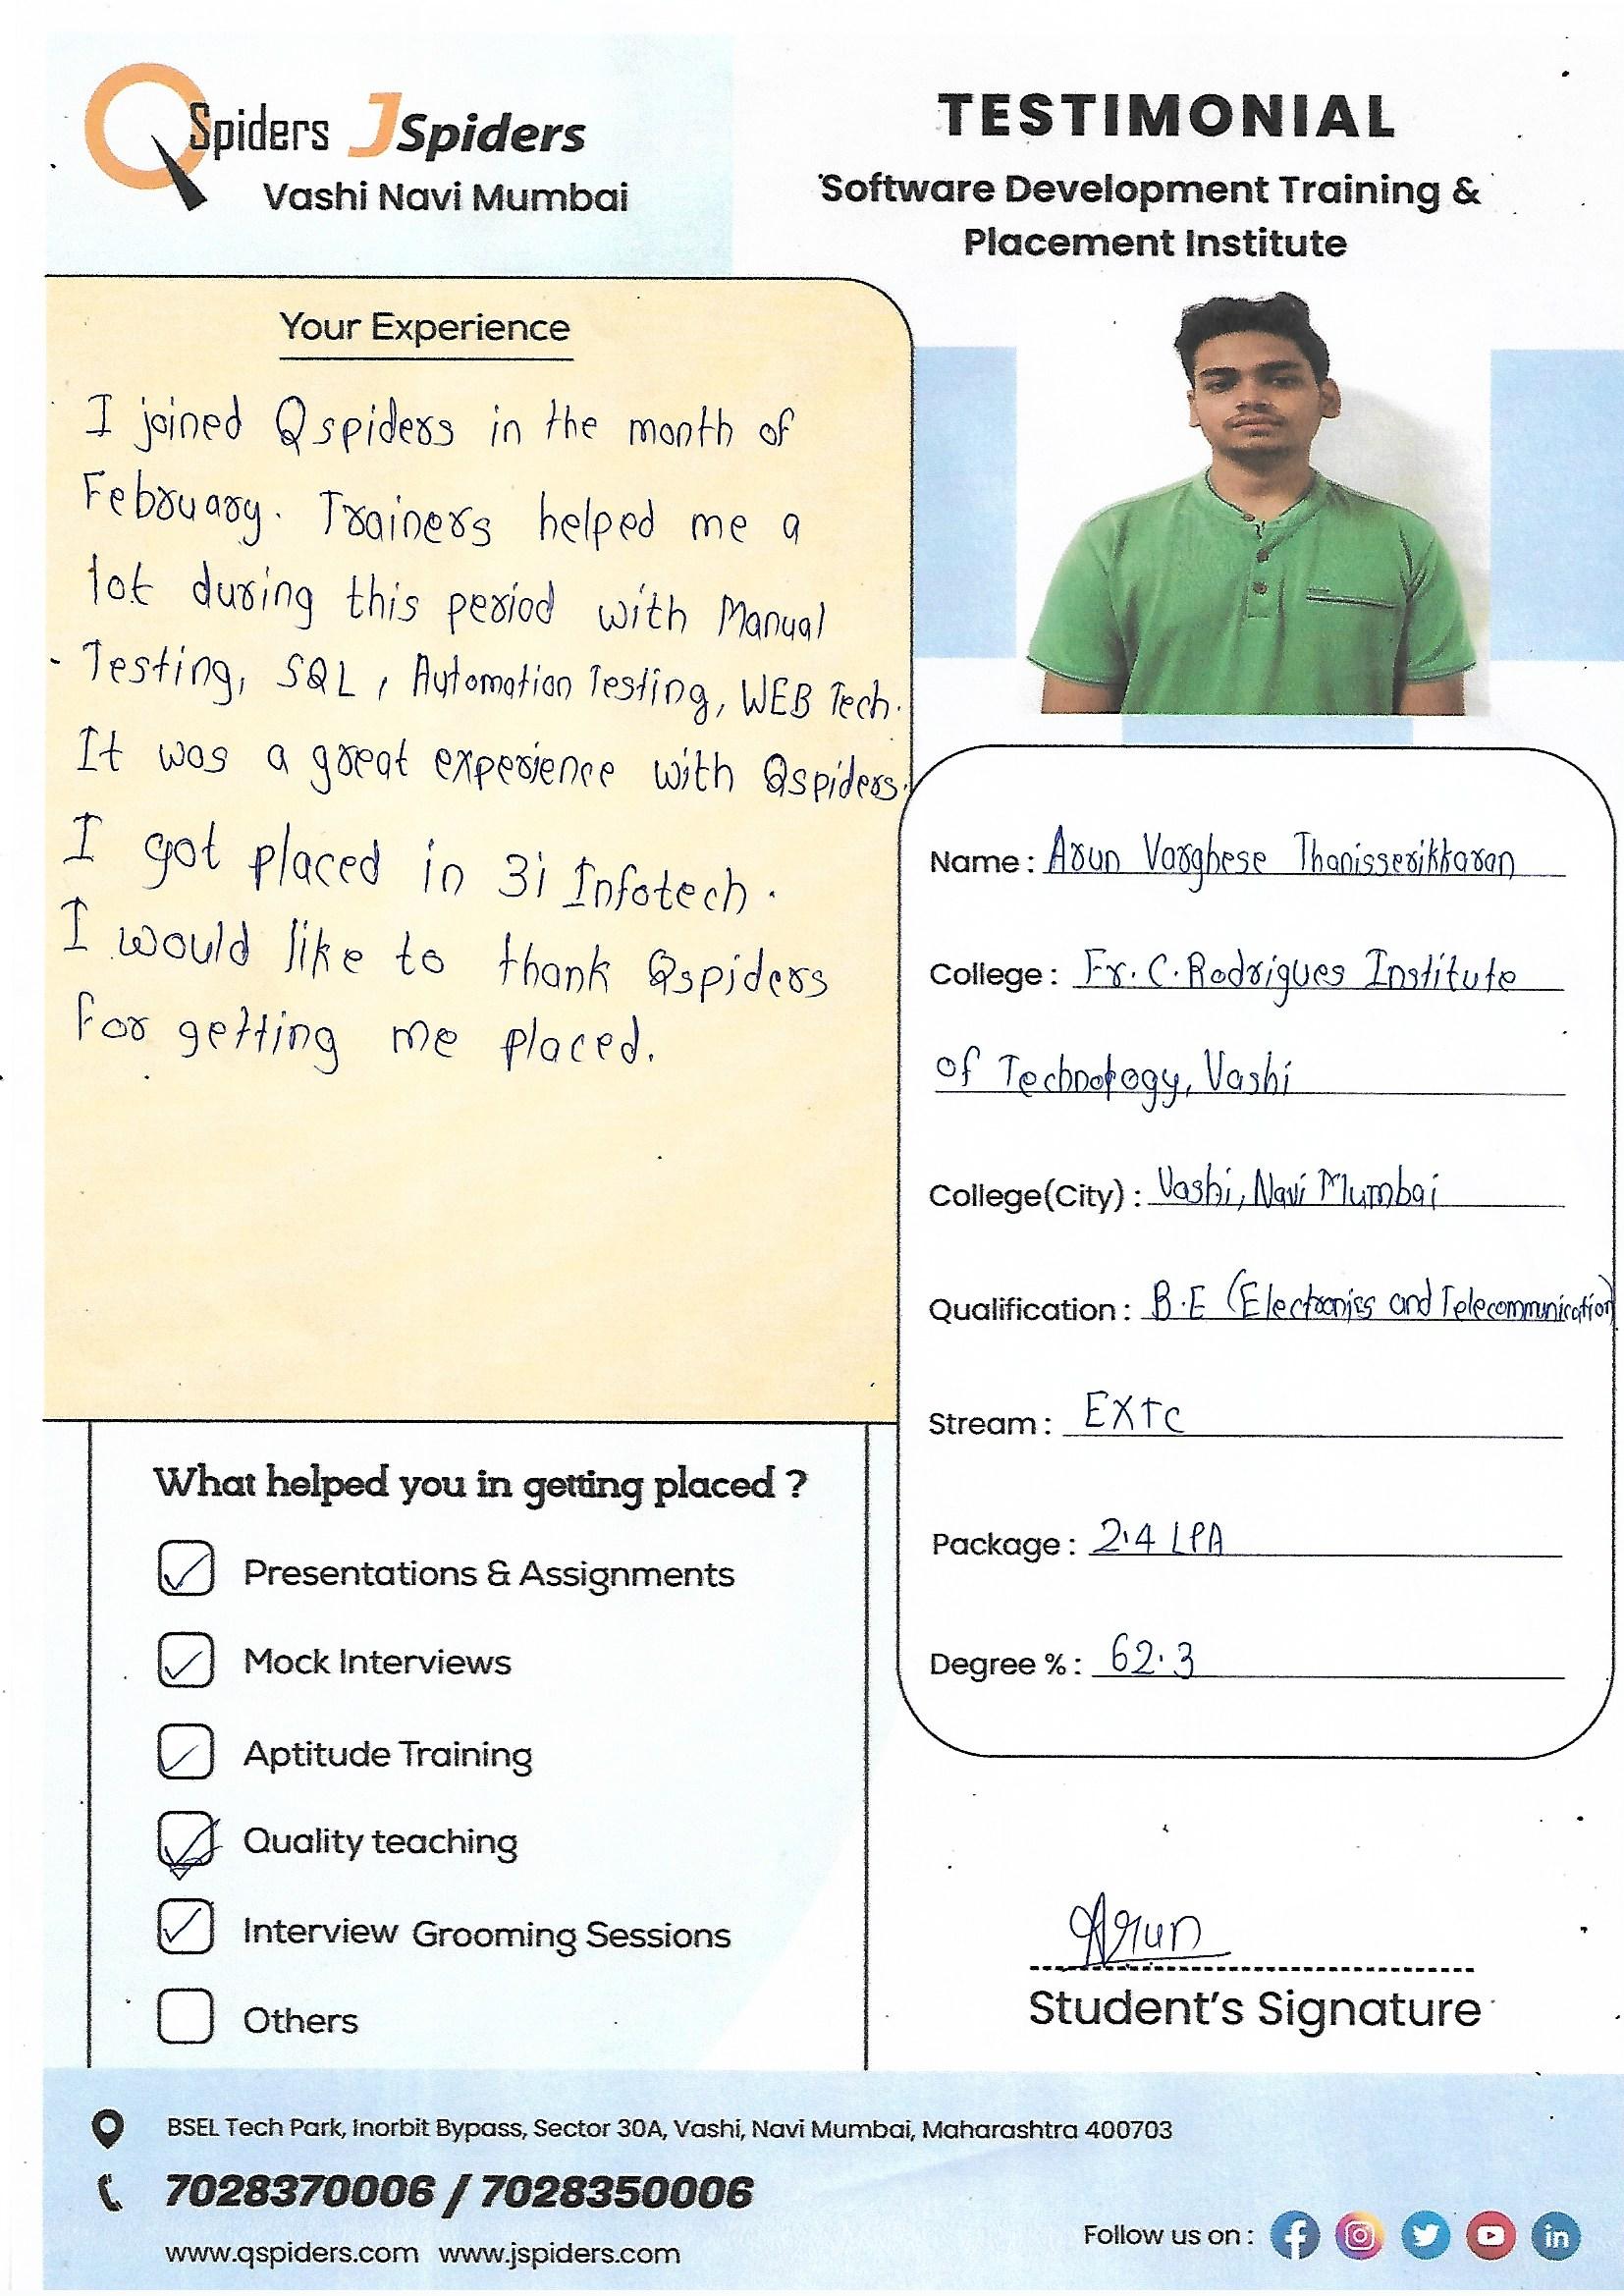 QSpiders JSpiders
Vashi Navi Mumbai
TESTIMONIAL
Software Development Training &
Placement Institute
Your Experience
I joined Qspiders in the month of
February. Trainers helped me a
lot during this period with Manual
Testing, SQL, Automation Testing, WEB Tech.
It was a great experience with Qspiders.
I got placed in 3i Infotech.
I would like to thank Qspiders
for getting me placed.
Name : Arun Varghese Thanisserikkaran
College : Fr. C. Rodrigues Institute
of Technology, Vashi
College(City) : Vashi, Navi Mumbai
Qualification : B.E (Electronics and Telecommunication)
Stream : EXTC
Package : 2.4 LPA
Degree % : 62.3
What helped you in getting placed ?
Presentations & Assignments
Mock Interviews
Aptitude Training
Quality teaching
Interview Grooming Sessions
Others
Arun
Student's Signature
BSEL Tech Park, Inorbit Bypass, Sector 30A, Vashi, Navi Mumbai, Maharashtra 400703
7028370006 / 7028350006
www.qspiders.com www.jspiders.com
Follow us on :